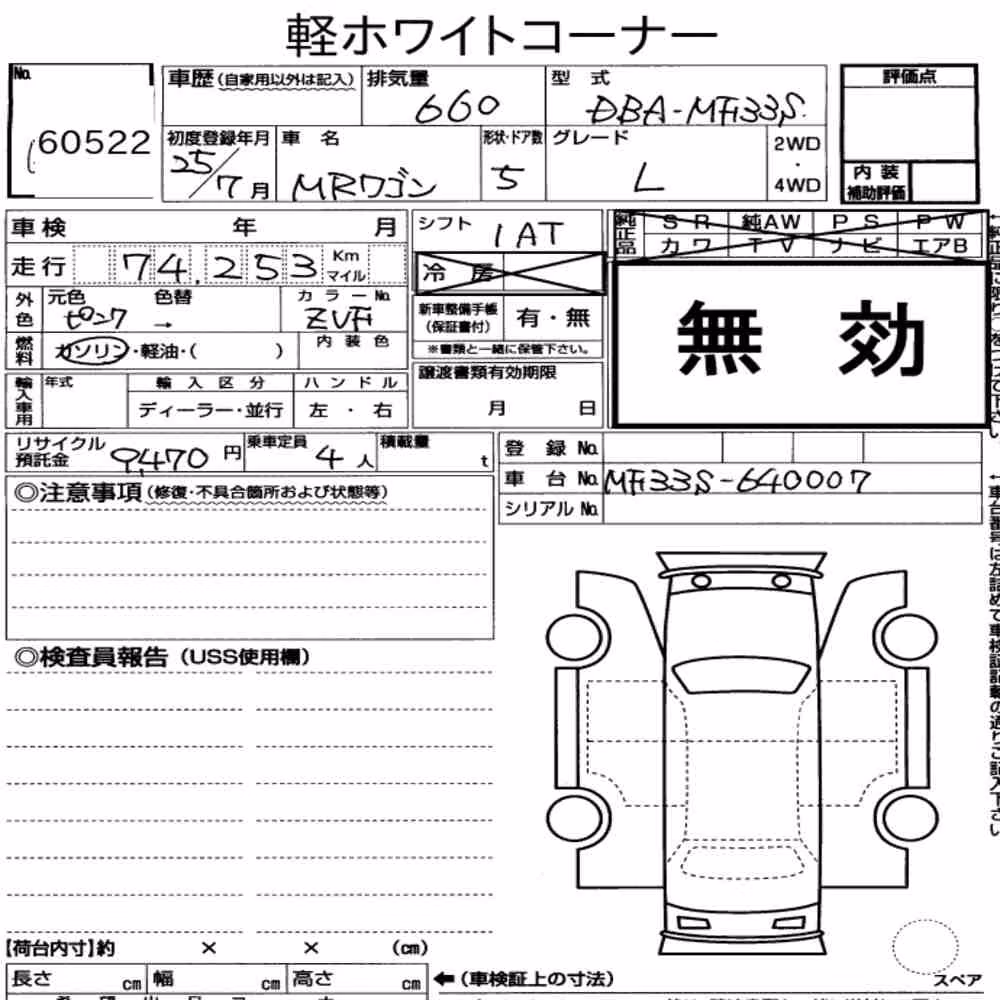 軽ホワイトコーナー
No.
60522
車歴(自家用以外は記入) 排気量 660 型 式 DBA-MF33S
初度登録年月 25/7月 車 名 MRワゴン 形状・ドア数 5 グレード L 2WD・4WD
評価点
内装補助評価
車検 年 月
走行 74,253 Km マイル
外色 元色 ピンク 色替 → カラーNo. ZVF
燃料 ガソリン・軽油・( ) 内装色
輸入車用 年式 輸入区分 ハンドル
ディーラー・並行 左・右
シフト 1AT
冷房
新車整備手帳(保証書付) 有・無
※書類と一緒に保管下さい。
譲渡書類有効期限
月 日
純正品 SR 純AW PS PW
カワ TV ナビ エアB
無効
リサイクル預託金 9,470円 乗車定員 4人 積載量 t
登録No.
車台No. MF33S-640007
シリアルNo.
◎注意事項(修復・不具合箇所および状態等)
◎検査員報告(USS使用欄)
【荷台内寸】約 × × (cm)
長さ cm 幅 cm 高さ cm ←(車検証上の寸法)
スペア